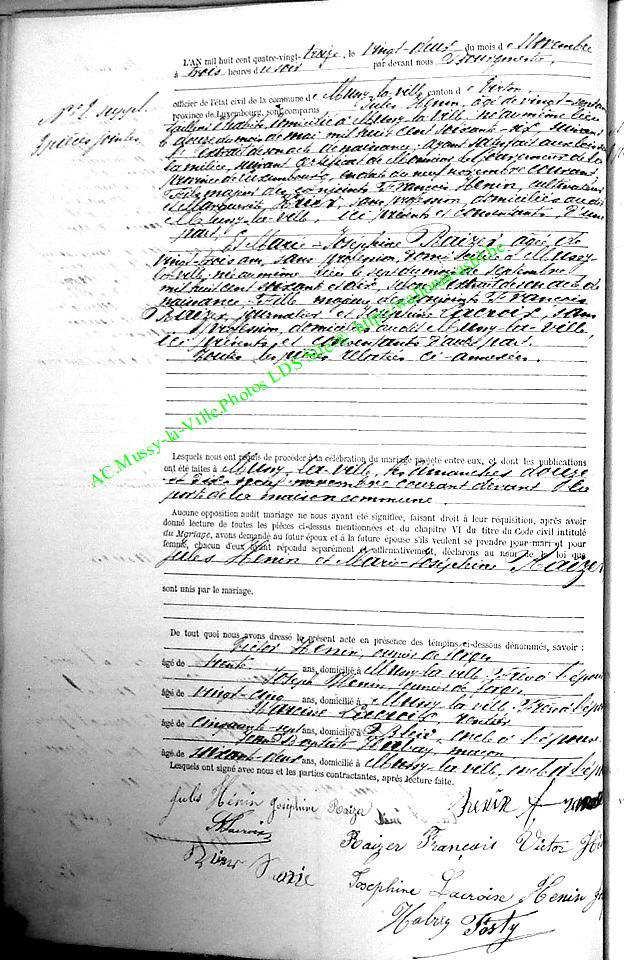 L'AN mil huit cent quatre-vingt-treize, le vingt-neuf du mois de Novembre
à trois heures du soir par devant nous
officier de l'état civil de la commune de Mussy-la-ville canton de Virton,
province de Luxembourg, sont comparus Jules Henin, âgé de vingt-sept ans
domicilié à Mussy-la-Ville, né au même lieu
le du mois de mai mil huit cent soixante-six, suivant
extrait de son acte de naissance; ayant satisfait aux lois sur
la milice, suivant certificat de Monsieur le Gouverneur de la
province de Luxembourg, en date du neuf novembre courant,
Fils majeur des conjoints François Henin, cultivateur
et Marguerite, sans profession, domiciliés au dit
Mussy-la-ville, ici présents et consentants, d'une
part.
Et Marie-Josephine Raizer, âgée de
vingt-trois ans, sans profession, domiciliée à Mussy-
la-ville, née au même lieu le sept du mois de Septembre
mil huit cent soixante et dix, selon extrait de son acte de
naissance. Fille majeure des conjoints François
Raizer, journalier et Joséphine Lacroix, sans
profession, domiciliés au dit Mussy-la-Ville,
ici présents et consentants d'autre part.
Toutes les pièces relatées ci-annexées.
N° 9 suppl.
9 pièces jointes
AC.Mussy-la-Ville.Photos LDS Site @: http://wallonia.asbl.be
Lesquels nous ont requis de procéder à la célébration du mariage projeté entre eux, et dont les publications
ont été faites à Mussy-la-ville, les dimanches douze
et dix-neuf novembre courant devant la
porte de la maison commune.
Aucune opposition audit mariage ne nous ayant été signifiée, faisant droit à leur réquisition, après avoir
donné lecture de toutes les pièces ci-dessus mentionnées et du chapitre VI du titre du Code civil intitulé
du Mariage, avons demandé au futur époux et à la future épouse s'ils veulent se prendre pour mari et pour
femme, chacun d'eux ayant répondu séparément et affirmativement, déclarons au nom de la loi que
Jules Henin et Marie-Joséphine Raizer
sont unis par le mariage.
De tout quoi nous avons dressé le présent acte en présence des témoins ci-dessous dénommés, savoir :
Victor Henin, ouvrier de forges
âgé de trente ans, domicilié à Mussy-la-ville, frère à l'époux
Joseph Henin, ouvrier de forges
âgé de vingt-cinq ans, domicilié à Mussy-la-ville, Frère à l'époux
Lacroix, rentier
âgé de cinquante-sept ans, domicilié à, oncle à l'épouse
Jean Baptiste, maçon
âgé de soixante-deux ans, domicilié à Mussy-la-ville, oncle à l'épouse
Lesquels ont signé avec nous et les parties contractantes, après lecture faite.
Jules Hénin Joséphine Raizer
Henin f
Lacroix
Raizer François Victor
Marie
Josephine Lacroix Henin
Habay